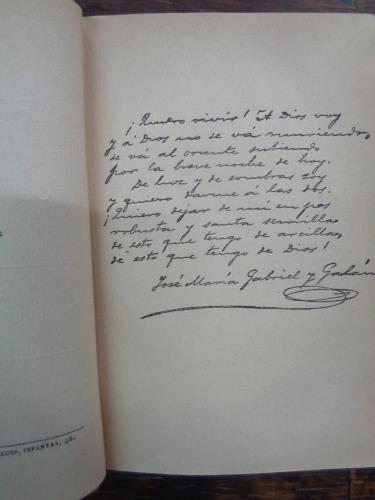 ¡Quiero vivir! A Dios voy
y á Dios no se vá muriendo,
se vá al oriente subiendo
por la breve noche de hoy.
De luz y de sombras soy
y quiero darme á las dos.
¡Quiero dejar de mí en pos
robusta y santa semilla
de esto que tengo de arcilla,
de esto que tengo de Dios!
José María Gabriel y Galán
INFANTAS, 42.